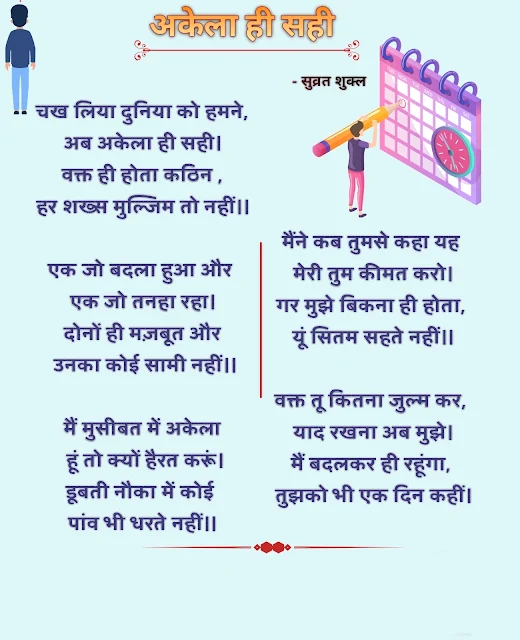 अकेला ही सही
- सुव्रत शुक्ल
चख लिया दुनिया को हमने,
अब अकेला ही सही।
वक्त ही होता कठिन ,
हर शख्स मुल्जिम तो नहीं।।
एक जो बदला हुआ और
एक जो तनहा रहा।
दोनों ही मज़बूत और
उनका कोई सामी नहीं।।
मैं मुसीबत में अकेला
हूं तो क्यों हैरत करूं।
डूबती नौका में कोई
पांव भी धरते नहीं।।
मैंने कब तुमसे कहा यह
मेरी तुम कीमत करो।
गर मुझे बिकना ही होता,
यूं सितम सहते नहीं।।
वक्त तू कितना जुल्म कर,
याद रखना अब मुझे।
मैं बदलकर ही रहूंगा,
तुझको भी एक दिन कहीं।